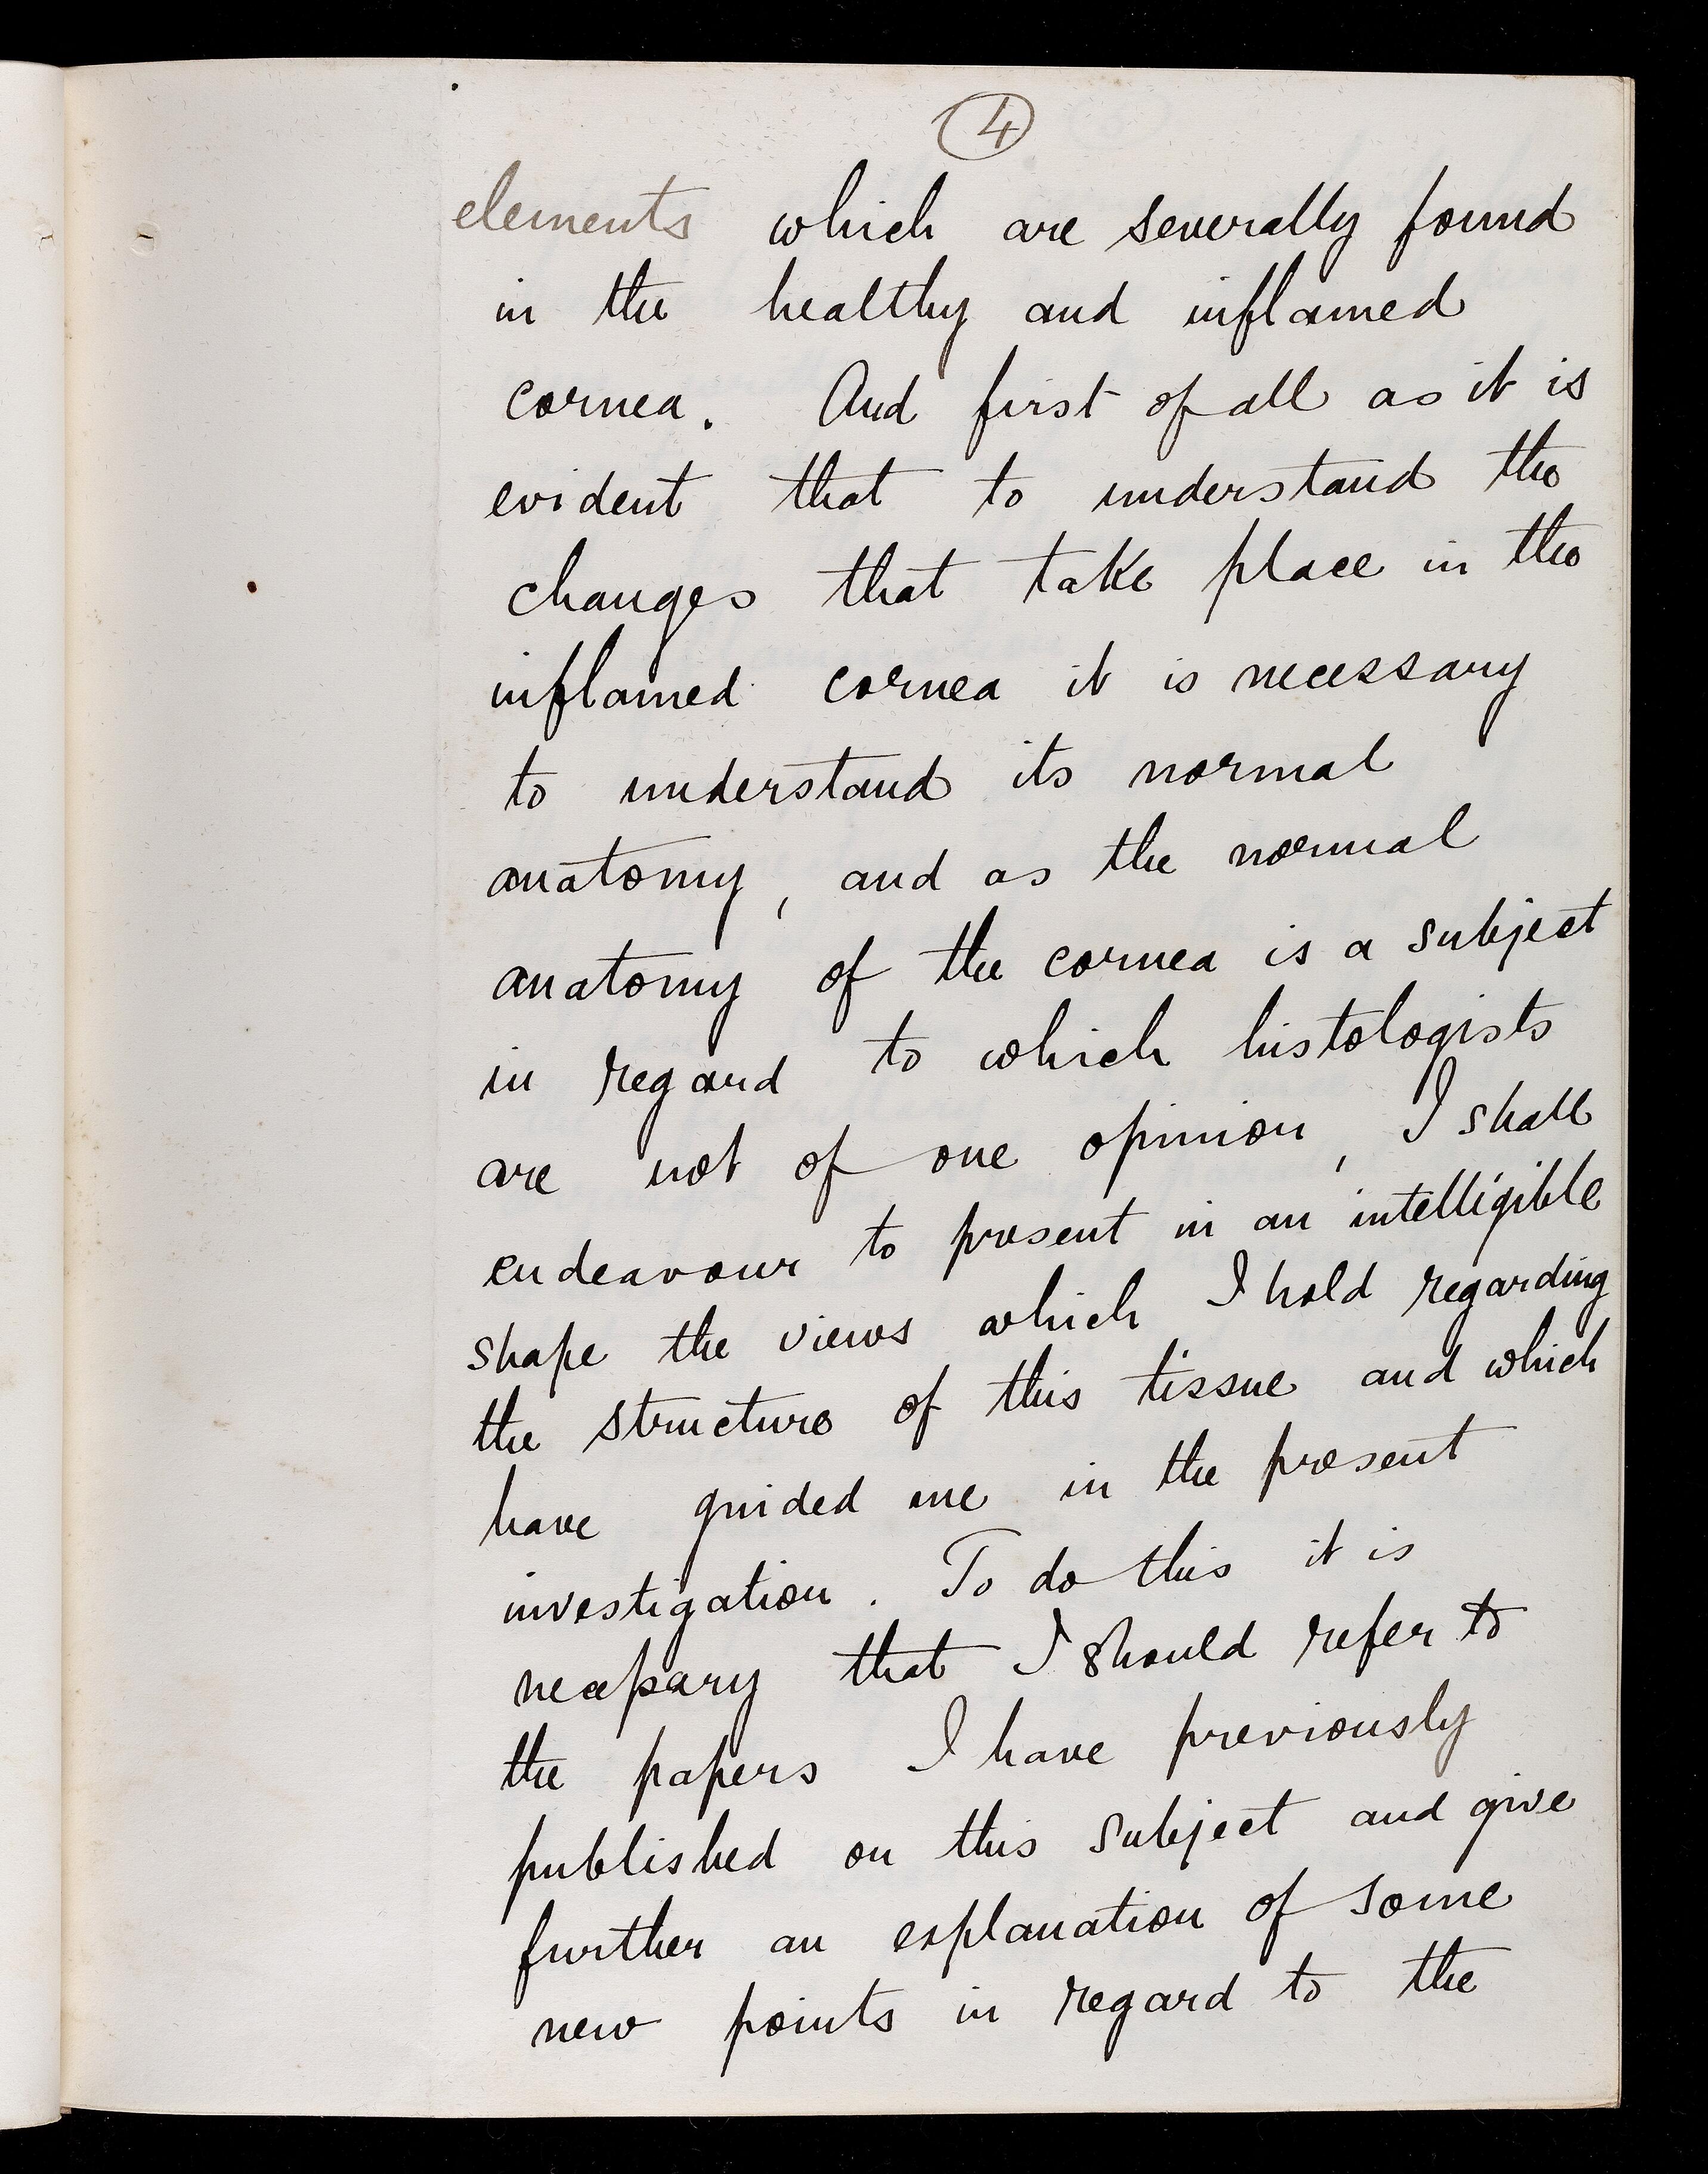 4
elements which are severally found
in the healthy and inflamed
cornea. And first of all as it is
evident that to understand the
changes that take place in the
inflamed cornea it is necessary
to understand its normal
anatomy, and as the normal
anatomy of the cornea is a subject
in regard to which histologists
are not of one opinion, I shall
endeavour to present in an intelligible
shape the views which I hold regarding
the structure of this tissue and which
have guided me in the present
investigation. To do this it is
necessary that I should refer to
the papers I have previously
published on this subject and give
further an explanation of some
new points in regard to the